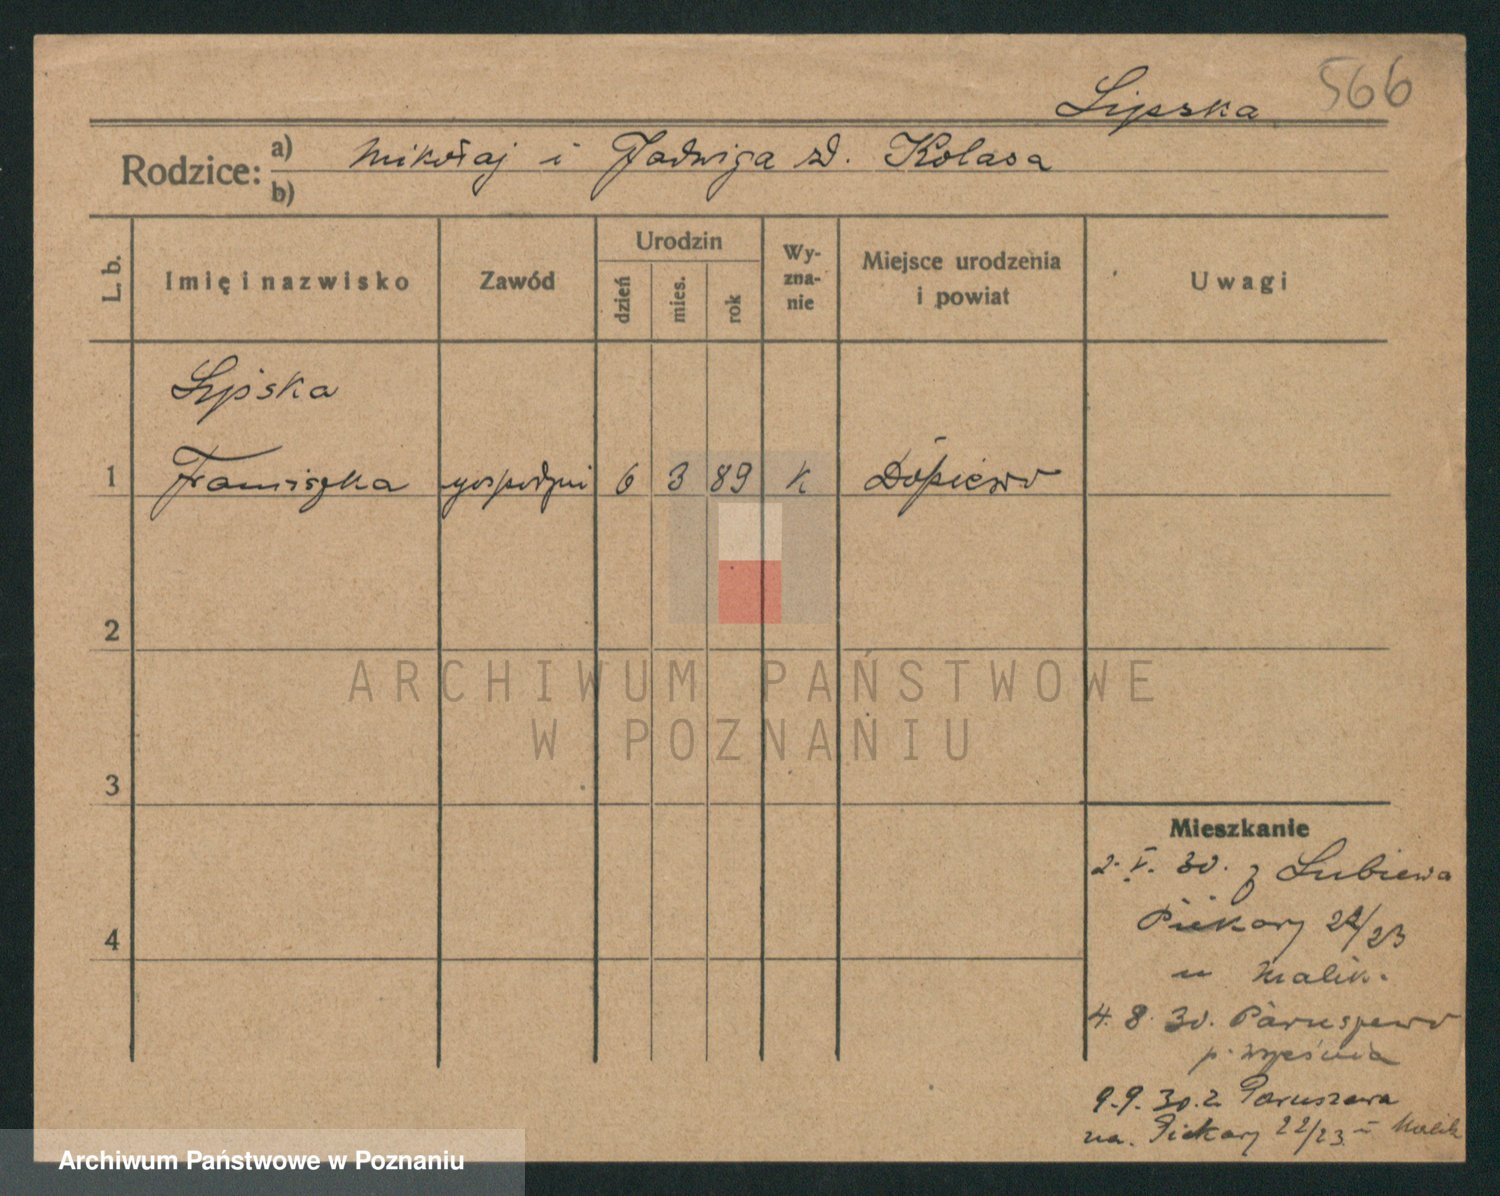 566
Lipska
Rodzice: a) Mikołaj i Jadwiga zd. Kolasa
b)
L. b. Imię i nazwisko Zawód Urodzin dzień mies. rok Wy-zna-nie Miejsce urodzenia i powiat Uwagi
Lipska
1 Franciszka gospodyni 6 3 89 k Dopiewo
2
3
4
Mieszkanie
2. V. 30. z Lubiewa
Piekary 22/23
u Malik.
4. 8. 30. Paruszewo
p. Września
9.9.30. z Paruszewa
na. Piekary 22/23 u Malik
ARCHIWUM PAŃSTWOWE
W POZNANIU
Archiwum Państwowe w Poznaniu